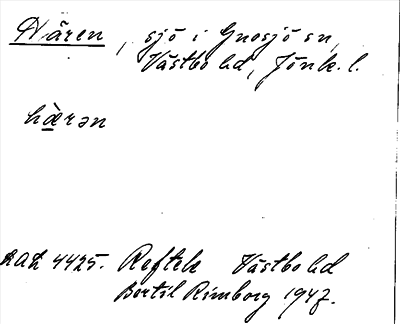 Hären, sjö i Gnosjö sn,
Västbo hd, Jönk. l.
hæ̀rən
RAÄ 4425. Reftele Västbo hd
Bertil Rimborg 1947.